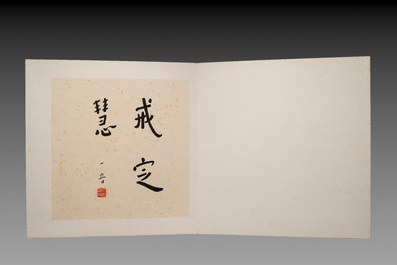 戒定
慧
一音